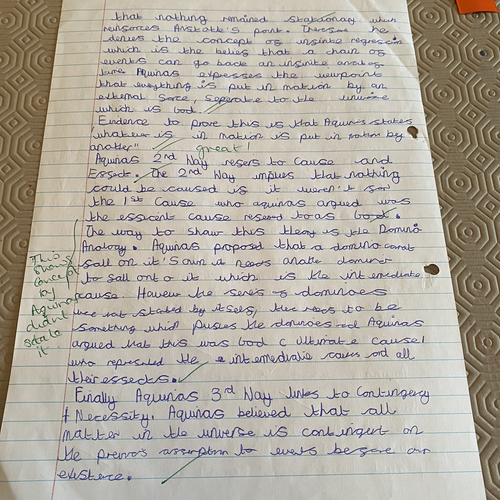 that nothing remained stationary which
reinforces Aristotle's point. Therefore he
denies the concept of infinite regression
which is the belief that a chain of
events can go back an infinite amount of
time Aquinas expresses the viewpoint
that everything is put in motion by an
external force, seperate to the universe
which is God.
Evidence to prove this is that Aquinas states
whatever is in motion is put in motion by
another"
great!
Aquinas 2nd Way refers to cause and
Effect. The 2nd Way implies that nothing
could be caused if it weren't for
the 1st Cause who aquinas argued was
the efficient cause refered to as God.
The way to show this theory is the Domino
Analogy. Aquinas proposed that a domino cannot
fall on it's own it needs another domino
to fall onto it which is the intermediate
cause. However the series of dominoes
was not started by itself, there needs to be
something which pushes the dominoes and Aquinas
argued that this was God (ultimate cause)
who represented the intermediate causes and all
their effects.
This shows concept by Aquinas didnt state it
Finally Aquinas 3rd Way links to Contingency
+ Necessity. Aquinas believed that all
matter in the universe is contingent on
the previous assumption to events before our
existence.